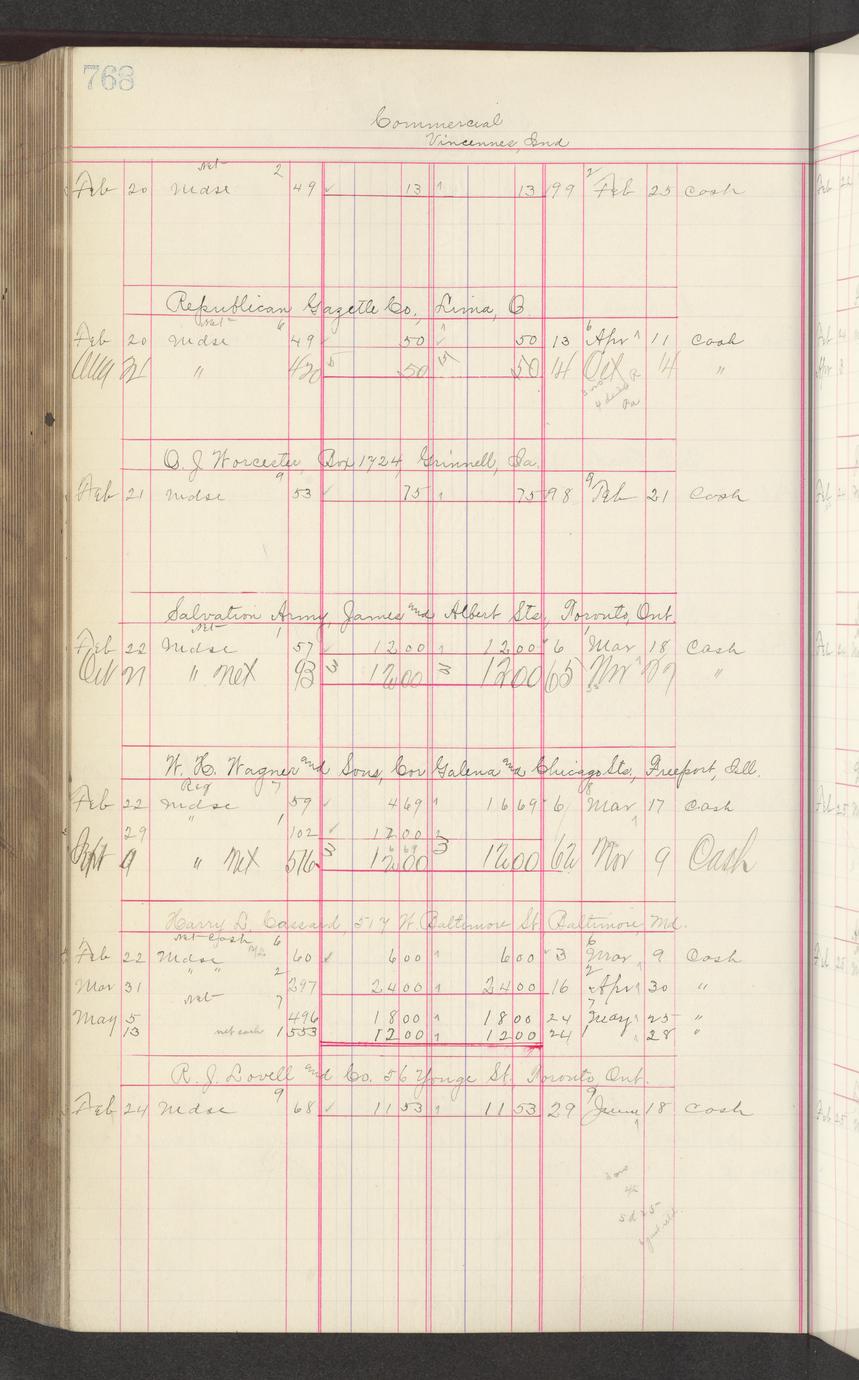 768
Commercial
Vincennes, Ind
Net 2 2
Feb 20 Mdse 49 13 13 99 Feb 25 Cash
Republican Gazette Co., Lima, O.
Net 6 6
Feb 20 Mdse 49 50 50 13 Apr 11 Cash
Aug 21 " 420 50 50 14 Oct 14 "
O. J. Worcester, Box 1724, Grinnell, Ia.
9 9
Feb 21 Mdse 53 75 75 98 Feb 21 Cash
Salvation Army, James and Albert Sts, Toronto, Ont.
Net 1 1
Feb 22 Mdse 57 12 00 12 00 6 Mar 18 Cash
Oct 21 " Net 93 12 00 12 00 65 Nov 27 "
W. H. Wagner and Sons, Cor Galena and Chicago Sts, Freeport, Ill.
Reg 7 8
Feb 22 Mdse 59 4 69 16 69 6 Mar 17 Cash
29 " 1 102 12 00
Sept 9 " Net 516 12 00 12 00 62 Nov 9 Cash
Harry L. Cassard, 517 W. Baltimore St. Baltimore, Md.
Net Cash 6 6
Feb 22 Mdse 60 6 00 6 00 3 Mar 9 Cash
Mar 31 " " 2 297 24 00 24 00 16 2 Apr 30 "
Net 7 7
May 5 496 18 00 18 00 24 May 25 "
13 net cash 1 553 12 00 12 00 24 1 28 "
R. J. Lovell and Co. 56 Yonge St. Toronto, Ont.
9 9
Feb 24 Mdse 68 11 53 11 53 29 June 18 Cash